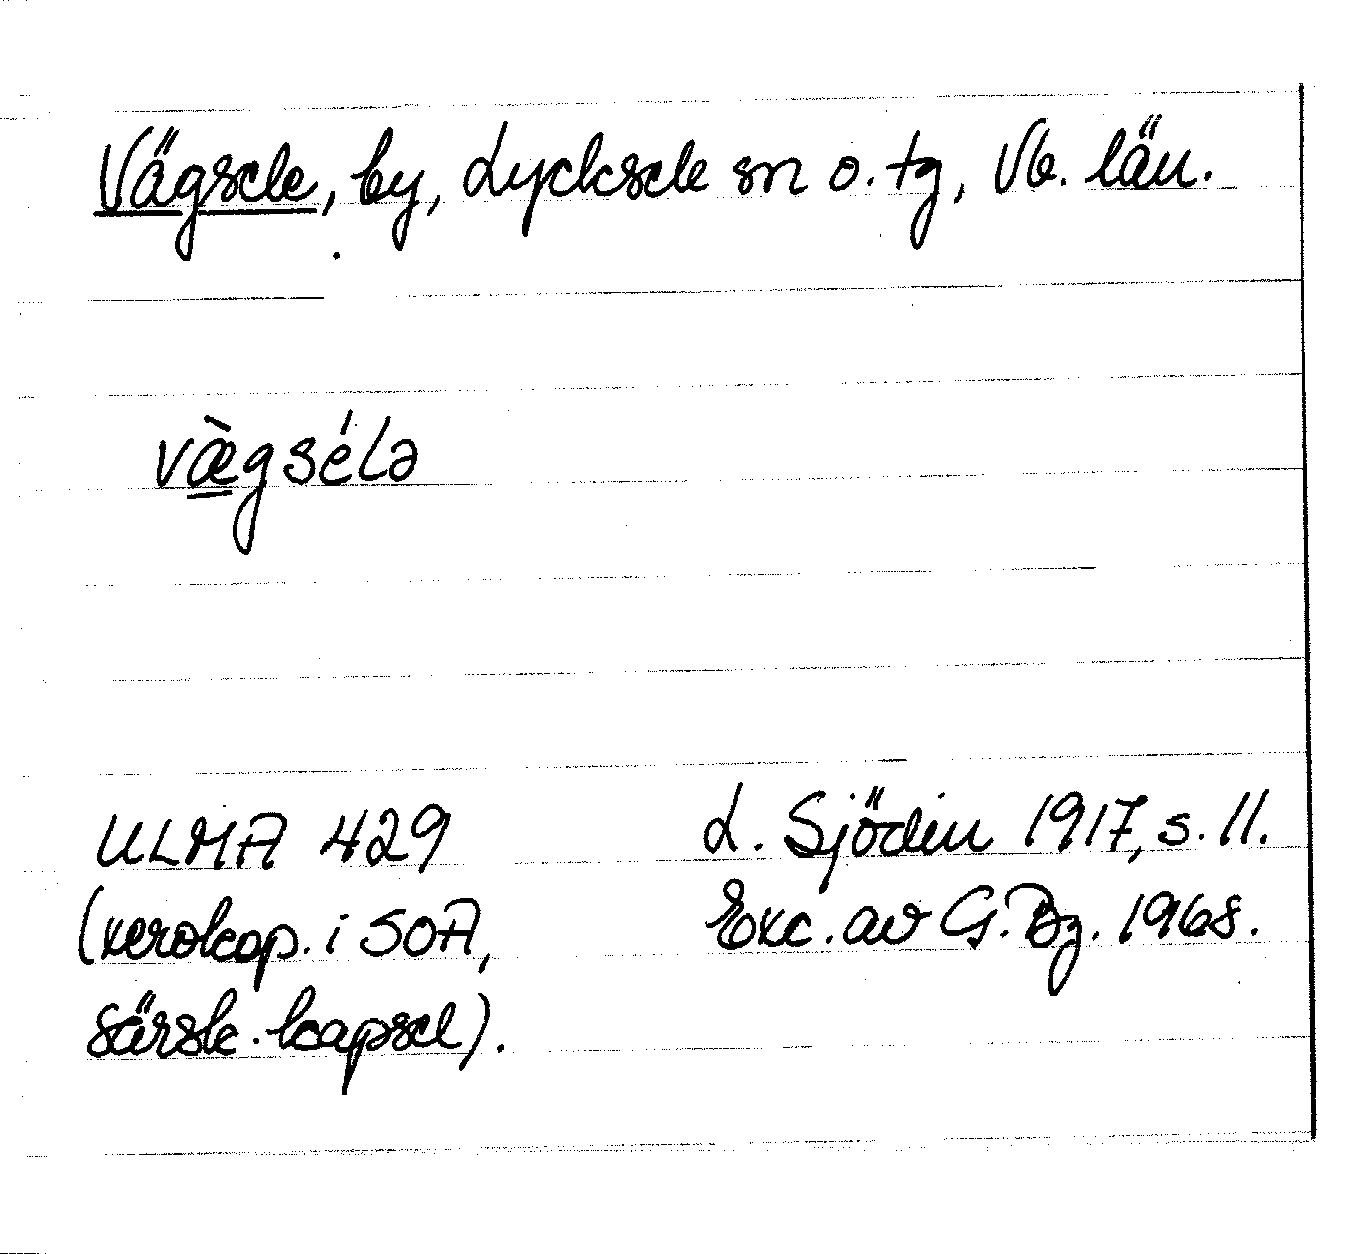 Vägsele, by, Lycksele sn o. tg, Vb. län.
væ̀gséLə
ULMA 429
(xerokop. i SOA,
särsk. kapsel).
L. Sjödin 1917, s. 11.
Exc. av G. Bz. 1968.